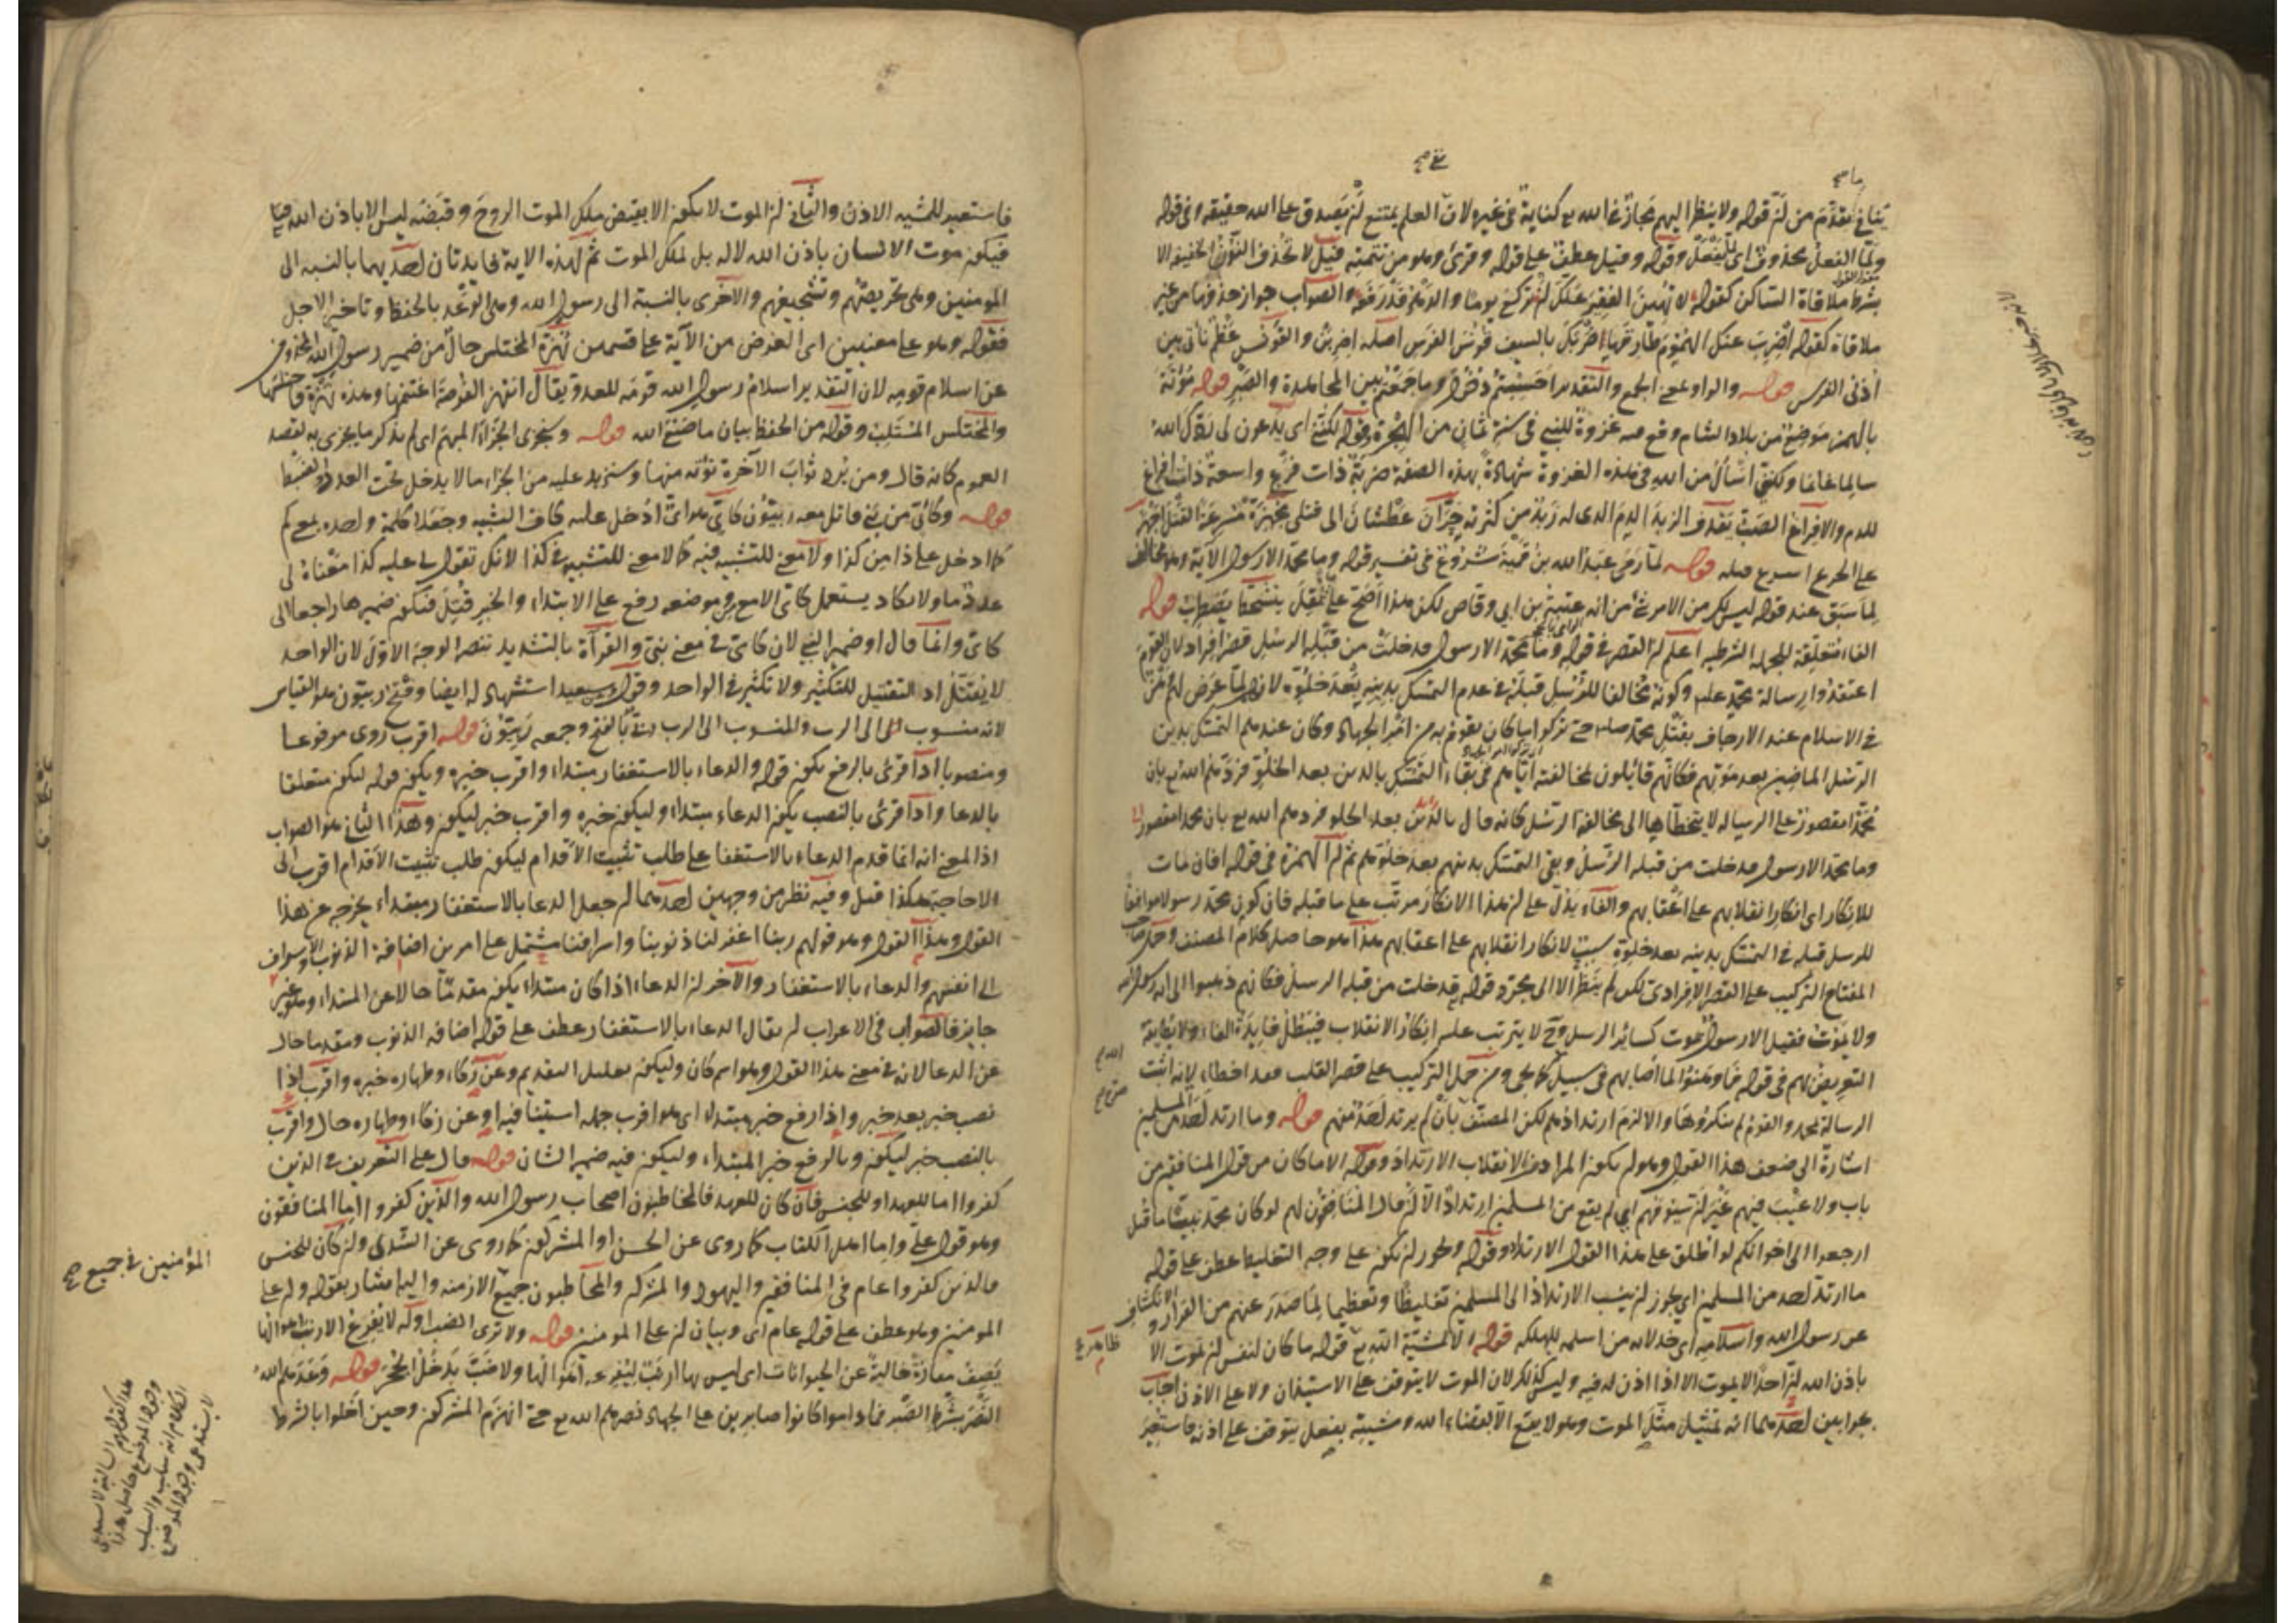 ينافي ما تقدم من أن قوله ولا ينظر اليهم مجاز عما الله به كناية في غيره لان العلم يمتنع ان يصدق على الله حقيقة وفي قوله
ولما الفعل محذوف اي وقوله وقيل عطف على قوله وقرئ وهو من تتمته قيل لا تحذف النون الخفيفة الا
بشرط ملاقاة الساكن كقوله لا تهين الفقير علك ان تركع يوما والدهر قد رفعه والصواب جواز حذفها من غير
ملاقاة كقوله اضرب عنك الهموم طارقها ضربك بالسيف قونس الفرس اصله اضربن والقونس عظم ناتئ بين
اذنى الفرس قوله والواو بمعنى الجمع والتقدير احسبتم دخول وما جمعتم بين المجاهدة والصبر قوله مؤتة
بالهمز موضع من بلاد الشام وقع فيه غزوة للنبي في سنة ثمان من الهجرة قوله لكنني اى يدعون لى بردك الله
سالما غانما ولكنني اسأل من الله في هذه الغزوة شهادة بهذه الصفة ضربة ذات فرغ واسعة ذات افراغ
للدم والافراغ الصب يقذف الزبد الدم الذى له زبد من كثرته حران عطشان الى قتلى مجهزة مسرعة القتل اجهز
على الجريح اسرع قتله قوله لما رمى عبد الله بن قمية شروع في تفسير قوله وما محمد الا رسول الآية وهو مخالف
لما سبق عند قوله ليس لك من الامر شئ من انه عتبة بن ابي وقاص لكن هذا اصح قوله
الفاء متعلقة بالجملة الشرطية اعلم ان القصر في قوله وما محمد الا رسول قد خلت من قبله الرسل قصر افراد لان القوم
اعتقدوا رسالة محمد عليه وكونه مخالفا للرسل قبله في عدم التمسك بدينه بعد خلوه لانه لما عرض لهم
في الاسلام عند الارجاف بقتل محمد صلى حتى تركوا ما كان يقوم به من امر الجهاد وكان عندهم التمسك بدين
الرسل الماضين بعد موتهم فكانهم قائلون لمخالفته اياهم في بقاء التمسك بالدين بعد الخلو فردهم الله بان
محمدا مقصور على الرسالة لا يتخطاها الى مخالفة الرسل كانه قال بالدين بعد الخلو فردهم الله بع بان محمدا مقصور
وما محمد الا رسول قد خلت من قبله الرسل وبقي التمسك بدينهم بعد خلوهم ثم ان الهمزة في قوله افان مات
للانكار اى انكار انقلابهم على اعقابهم والفاء يدل على ان هذا الانكار مرتب على ما قبله فان كون محمد رسولا موافقا
للرسل قبله في التمسك بدينه بعد خلوه سبب لانكار انقلابهم على اعقابهم هذا هو حاصل كلام المصنف وحمل صاحب
المفتاح التركيب على القصر الافرادى لكن لم ينظر الا الى مجرد قوله قد خلت من قبله الرسل فكانهم ذهبوا الى انه رسول
ولا يموت فقيل الا رسول يموت كسائر الرسل وح لا يترتب عليه انكار الانقلاب فيبطل فايدة الفاء ولا يطابقه
التعريض لهم في قوله فما وهنوا لما اصابهم في سبيل كما يجى ومن حمل التركيب على قصر القلب فقد اخطاء لانه اثبت
الرسالة لمحمد والقوم لم ينكروها والا لزم ارتدادهم لكن المصنف بان لم يرتد احد منهم قوله وما ارتد احد من المسلمين
اشارة الى ضعف هذا القول وهو ان يكون المراد من الانقلاب الارتداد وقوله الا ما كان من قول المنافقين من
باب ولا عيب فيهم غير ان سيوفهم اى لم يقع من المسلمين ارتداد الا ان قال المنافقون لهم لو كان محمد نبيا ما قتل
ارجعوا الى اخوانكم لو اطلق على هذا القول الارتداد وقوله ويجوز ان يكون على وجه التغليظ عطف على قوله
ما ارتد احد من المسلمين اى يجوز ان ينسب الارتداد الى المسلمين تغليظا وتعظيما لما صدر عنهم من الفرار والانكشاف
عن رسول الله واسلامه اى خذلانه من اسلمه للهلكة قوله الا بمشية الله بع قوله ما كان لنفس ان تموت الا
باذن الله ان احدا لا يموت الا اذا اذن له فيه وليس كذلك لان الموت لا يتوقف على الاستيذان ولا على الاذن اجاب
بجوابين احدهما انه تمثيل مثل الموت وهو لا يقع الا بقضاء الله ومشيته بفعل يتوقف على اذن فاستعير
فاستعير للمشية الاذن والثانى ان الموت لا يكون الا بقبض ملك الموت الروح وقبضه ليس الا باذن الله
فيكون موت الانسان باذن الله لا له بل لملك الموت ثم لهذه الاية فايدتان احديهما بالنسبة الى
المومنين وهى تحريضهم وتشجيعهم والاخرى بالنسبة الى رسول الله وهى الوعد بالحفظ وتاخير الاجل
فقوله وهو على معنيين اى الغرض من الآية على قسمين نهزة المختلس حال من ضمير رسول الله المحذوف
عن اسلام قومه لان التقدير اسلام رسول الله قومه للعدو يقال انتهز الفرصة اغتنمها وهذه نهزة فاختلسها
والمختلس المستلب وقوله من الحفظ بيان ما صنع الله قوله وسنجزى الجزاء المبهم اى لم يذكر ما يجزى به لقصد
العموم كانه قال ومن يرد ثواب الآخرة نؤته منها وسنزيد عليه من الجزاء ما لا يدخل تحت العدد والضبط
قوله وكائن من نبي قاتل معه ربيون كائن هو اى ادخل عليه كاف التشبيه وجعلا كلمة واحدة بمعنى كم
كما دخل على ذا من كذا ولا معنى للتشبيه فيه كما لا معنى للتشبيه في كذا لانك تقول لى عليه كذا معناه لى
عدد ما ولا يكاد يستعمل كائن الا مع من وموضعه رفع على الابتداء والخبر قتل فيكون ضميرها راجعا الى
كائن وانما قال او ضمير النبي لان كائن في معنى نبي والقرآة بالتشديد تنصر الوجه الاول لان الواحد
لا يقتل اذ التقتيل للتكثير ولا تكثير في الواحد وقول سعيد استشهاد له ايضا وفتح ربيون هو القياس
لانه منسوب الى الرب والمنسوب الى الرب بالفتح وجمعه ربيون قوله اقرب روى مرفوعا
ومنصوبا اذا قرئ بالرفع يكون قوله والدعاء بالاستغفار مبتداء واقرب خبره ويكون قوله ليكون متعلقا
بالدعا واذا قرئ بالنصب يكون الدعاء مبتداء وليكون خبره واقرب خبر ليكون وهذا الثانى هو الصواب
اذ المعنى انه انما قدم الدعاء بالاستغفار على طلب تثبيت الاقدام ليكون طلب تثبيت الاقدام اقرب الى
الاجابة هكذا قيل وفيه نظر من وجهين احدهما ان جعل الدعا بالاستغفار مبتداء يخرجه عن هذا
القول وهذا القول وهو قولهم ربنا اغفر لنا ذنوبنا واسرافنا مشتمل على امرين اضافة الذنوب والاسراف
الى انفسهم والدعاء بالاستغفار والآخر ان الدعاء اذا كان مبتداء يكون مقدما حالا عن المبتداء وهو غير
جايز فالصواب في الاعراب ان يقال الدعاء بالاستغفار عطف على قوله اضافة الذنوب ومقدما حال
عن الدعا لانه في معنى هذا القول وهو اسم كان وليكون تعليل التقديم وعن زكاء وطهارة خبره واقرب اذا
نصب خبر بعد خبر واذا رفع خبر مبتداء اى هو اقرب جمله استينافيه او عن زكاء وطهارة حال واقرب
بالنصب خبر ليكون وبالرفع خبر المبتداء وليكون فيه ضمير الشان قوله قال على التعريف في الذين
كفروا اما للعهد او للجنس فان كان للعهد فالمخاطبون اصحاب رسول الله والذين كفروا اما المنافقون
وهو قول على واما اهل الكتاب كما روى عن الحسن او المشركون كما روى عن السدى وان كان للجنس
فالذين كفروا عام في المنافقين واليهود والمشركين والمخاطبون جميع الازمنة واليه اشار بقوله وان على
المومنين وهو عطف على قوله عام اى وبيان ان على المومنين قوله ولا ترى الضب اوله لا يفزع الارنب اهوالها
يصف مفازة خالية عن الحيوانات اى ليس بها ارنب ليفزعه اهوالها ولا ضب يدخل الجحر قوله وعدهم الله
النصر بشرط الصبر فما داموا كانوا صابرين على الجهاد نصرهم الله بع حتى انهزم المشركون وحين اخلوا بالشرط
المؤمنين في جميع صح